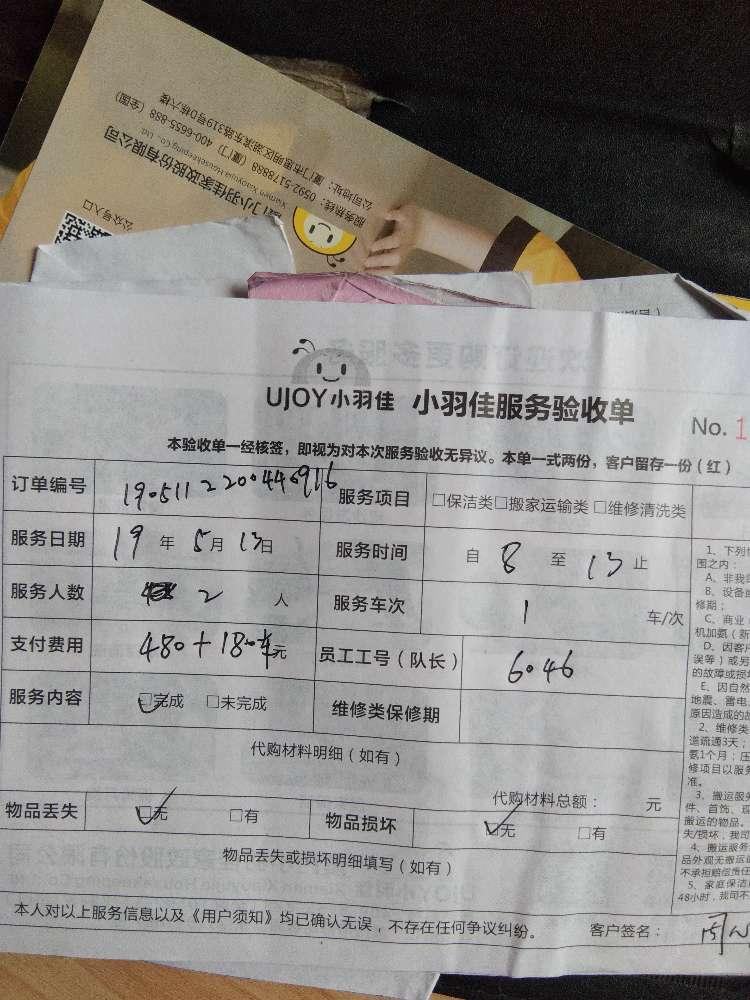 公司地址：厦门市思明区湖滨东路319号D栋六楼
服务热线：0592-5178888（厦门）400-6655-888（全国）
Xiamen Xiaoyujia Housekeeping Co., Ltd.
厦门小羽佳家政股份有限公司
公众号入口
UJOY小羽佳 小羽佳服务验收单
No. 1
本验收单一经核签，即视为对本次服务验收无异议。本单一式两份，客户留存一份（红）
订单编号 服务项目 □保洁类□搬家运输类 □维修清洗类
服务日期 19 年 5 月 13 日 服务时间 自 8 至 13 止
服务人数 2 人 服务车次 1 车/次
支付费用 480+180车元 员工工号（队长） 6046
服务内容 □完成 □未完成 维修类保修期
代购材料明细（如有）
代购材料总额： 元
物品丢失 □无 □有 物品损坏 □无 □有
物品丢失或损坏明细填写（如有）
本人对以上服务信息以及《用户须知》均已确认无误，不存在任何争议纠纷。 客户签名：
1、下列
围之内：
A、非我
B、设备
修期；
C、商业
机加氨（新
D、因客户
误等）或另
的故障或损
E、因自然
地震、雷电
原因造成的故
2、维修类
道疏通3天；
氨1个月；压
修项目以服务
准。
3、搬运服务
件、首饰、现
搬运的物品。
失/损坏，我司
4、搬运服务
品外观无搬运
不承担赔偿责任
5、家庭保洁
48小时，我司不